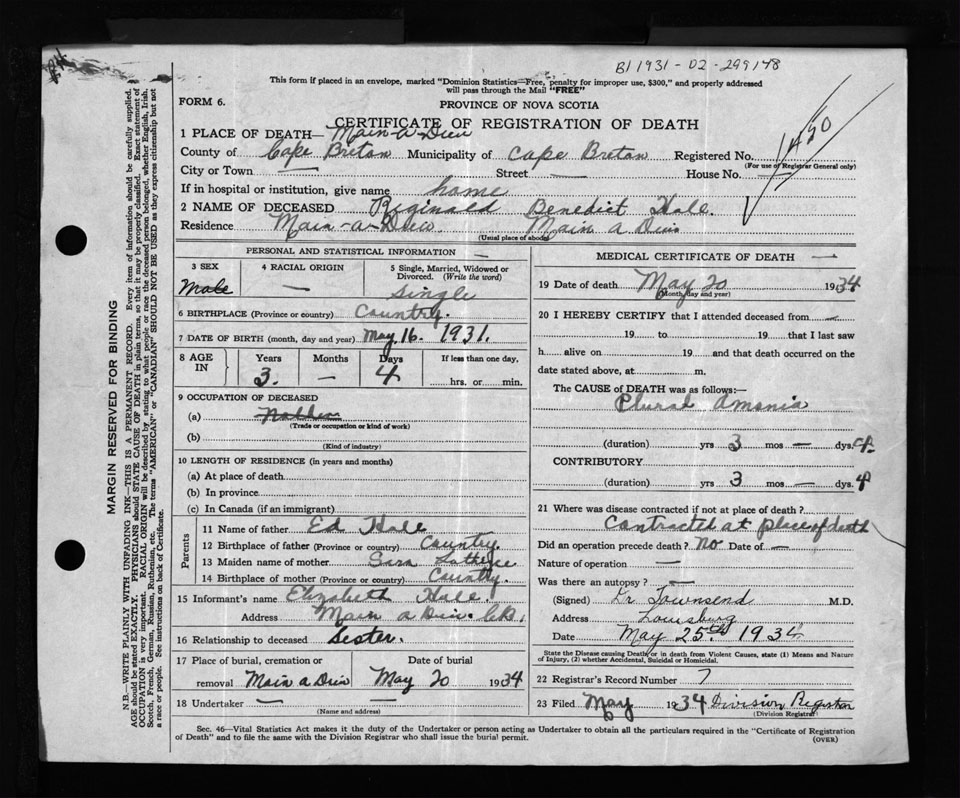 B1 1931-02-299148
This form if placed in an envelope, marked "Dominion Statistics—Free, penalty for improper use, $300," and properly addressed
will pass through the Mail "FREE"
FORM 6.
PROVINCE OF NOVA SCOTIA
CERTIFICATE OF REGISTRATION OF DEATH
1450
1 PLACE OF DEATH— Main-a-Dieu
County of Cape Breton Municipality of Cape Breton Registered No.
(For use of Registrar General only)
City or Town — Street — House No.
If in hospital or institution, give name home
2 NAME OF DECEASED Reginald Benedict Hall.
Residence Main-a-Dieu. Main a Dieu
(Usual place of abode)
PERSONAL AND STATISTICAL INFORMATION —
3 SEX
Male
4 RACIAL ORIGIN
—
5 Single, Married, Widowed or Divorced. (Write the word)
Single
6 BIRTHPLACE (Province or country) Country.
7 DATE OF BIRTH (month, day and year) May 16. 1931.
8 AGE IN Years Months Days If less than one day.
3. — 4 hrs. or min.
9 OCCUPATION OF DECEASED
(a)
(Trade or occupation or kind of work)
(b)
(Kind of industry)
10 LENGTH OF RESIDENCE (in years and months)
(a) At place of death
(b) In province
(c) In Canada (if an immigrant)
Parents
11 Name of father Ed Hall
12 Birthplace of father (Province or country) Country.
13 Maiden name of mother Sara
14 Birthplace of mother (Province or country) Country.
15 Informant's name Elizabeth Hall.
Address Main a Dieu. CB.
16 Relationship to deceased Sester.
17 Place of burial, cremation or removal Main a Dieu
Date of burial May 20 1934
18 Undertaker — —
(Name and address)
MEDICAL CERTIFICATE OF DEATH —
19 Date of death May 20 1934
(Month, day and year)
20 I HEREBY CERTIFY that I attended deceased from —
19 to 19 that I last saw
h alive on 19 and that death occurred on the
date stated above, at m.
The CAUSE of DEATH was as follows:—
Plural Amonia
(duration) yrs 3 mos — dys. 4.
CONTRIBUTORY
(duration) yrs 3 mos — dys 4
21 Where was disease contracted if not at place of death?
Contracted at place of death
Did an operation precede death? No Date of —
Nature of operation —
Was there an autopsy? —
(Signed) Dr Townsend M.D.
Address Louisburg
Date May 25th 1934
State the Disease causing Death, or in death from Violent Causes, state (1) Means and Nature
of Injury, (2) whether Accidental, Suicidal or Homicidal.
22 Registrar's Record Number 7
23 Filed May 1934 Division Registrar
(Division Registrar)
Sec. 46—Vital Statistics Act makes it the duty of the Undertaker or person acting as Undertaker to obtain all the particulars required in the "Certificate of Registration
of Death" and to file the same with the Division Registrar who shall issue the burial permit.
(OVER)
MARGIN RESERVED FOR BINDING
N.B.—WRITE PLAINLY WITH UNFADING INK—THIS IS A PERMANENT RECORD. Every item of information should be carefully supplied.
AGE should be stated EXACTLY. PHYSICIANS should STATE CAUSE OF DEATH in plain terms, so that it may be properly classified. Exact statement of
OCCUPATION is very important. RACIAL ORIGIN will be described by stating to what people or race the deceased person belonged, whether English, Irish,
Scotch, French, German, Russian, Ruthenian, etc. The terms "AMERICAN" or "CANADIAN" SHOULD NOT BE USED as they express citizenship but not
a race or people. See instructions on back of Certificate.